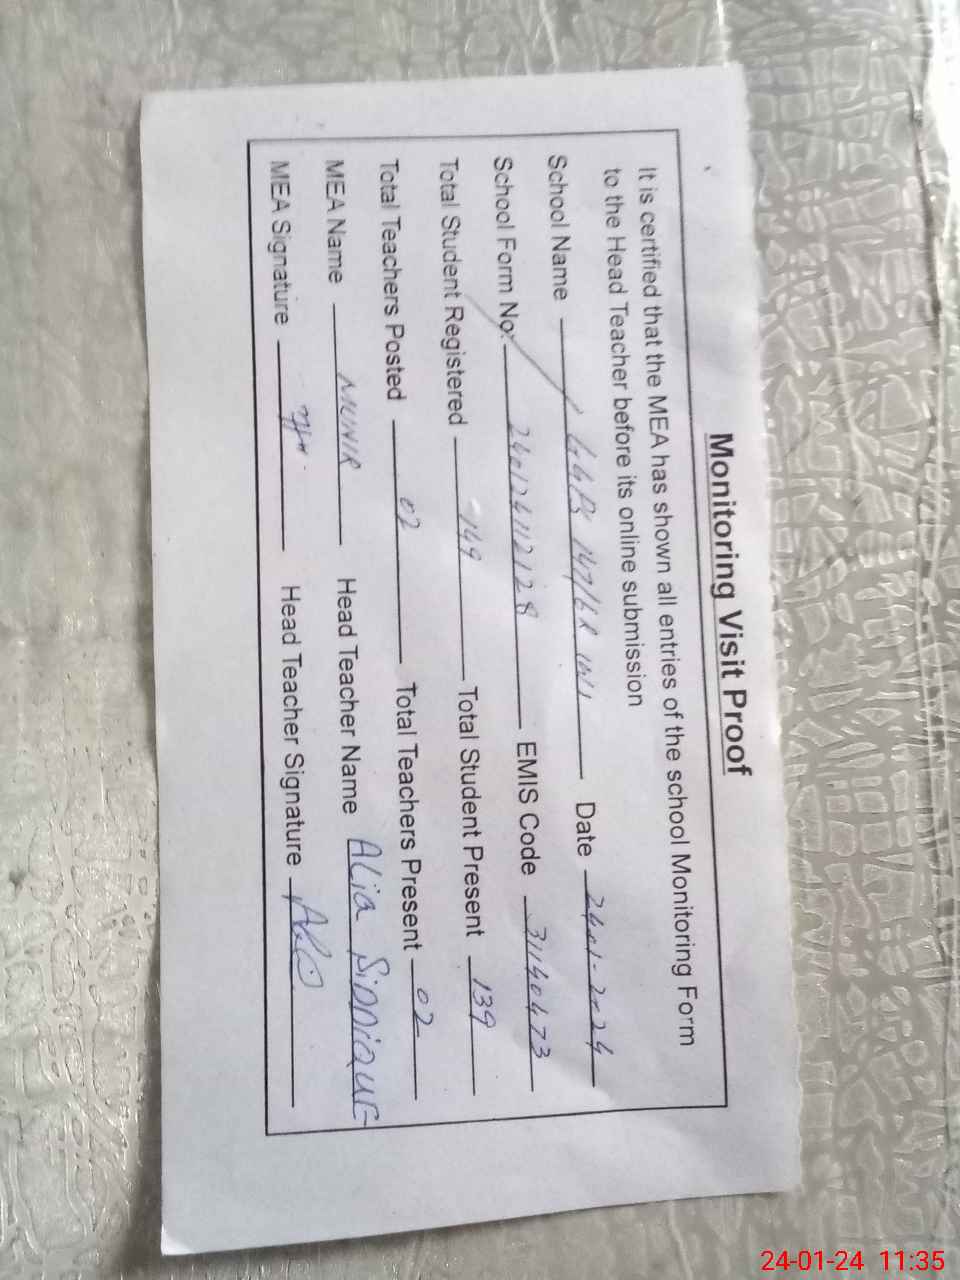 Monitoring Visit Proof
It is certified that the MEA has shown all entries of the school Monitoring Form
to the Head Teacher before its online submission
School Name GGPS 147/6R Date 24-01-2024
School Form No: 240124112128 EMIS Code 31140473
Total Student Registered 149 Total Student Present 139
Total Teachers Posted 02 Total Teachers Present 02
MEA Name MUNIR Head Teacher Name Alia Siddique
MEA Signature Head Teacher Signature
24-01-24 11:35